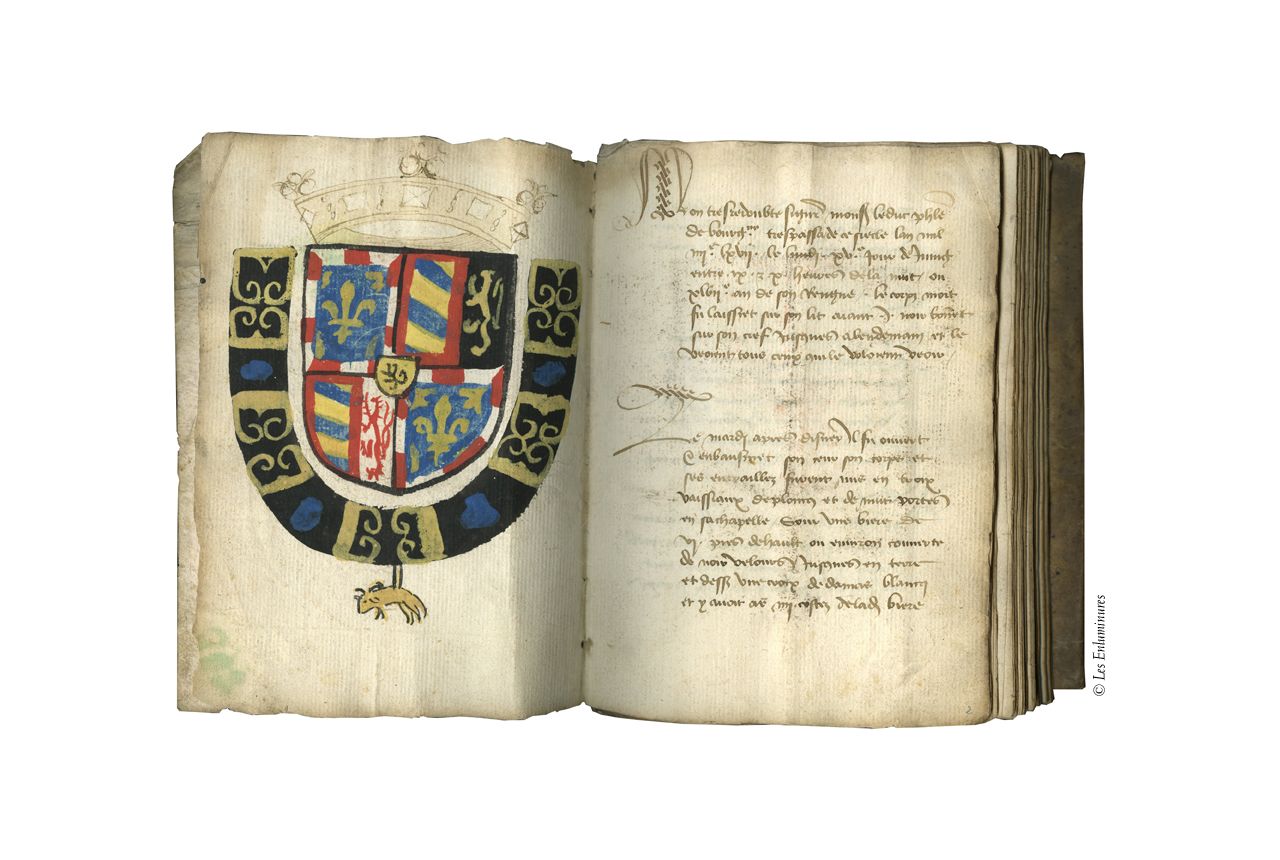 Mon tresredoubte seignr mons le duc phle
de bourgne trespassa de ce siecle lan mil
iiiic lxvii le lundi xve jour de Juing
entre ix & x heures de la nuit ou
xlviie an de son Rengne le corps mort
fu laissiet sur son lit aiant j noir bonnet
sur son cief Jusques alendemain et le
veoient tous ceux qui le voloient veoir
Le mardi apres disner Il fu ouvert
& enbausmet son ceur son corps et
ses entrailles furent mis en trois
vaissiaux de plomcq et de nuit portes
en sa chapelle Sour une biere de
vi pies de hault ou environ couverte
de noir velours Jusques en terre
et dess une croix de damas blancq
et y avoit as iiii costez de lad biere
2
© Les Enluminures